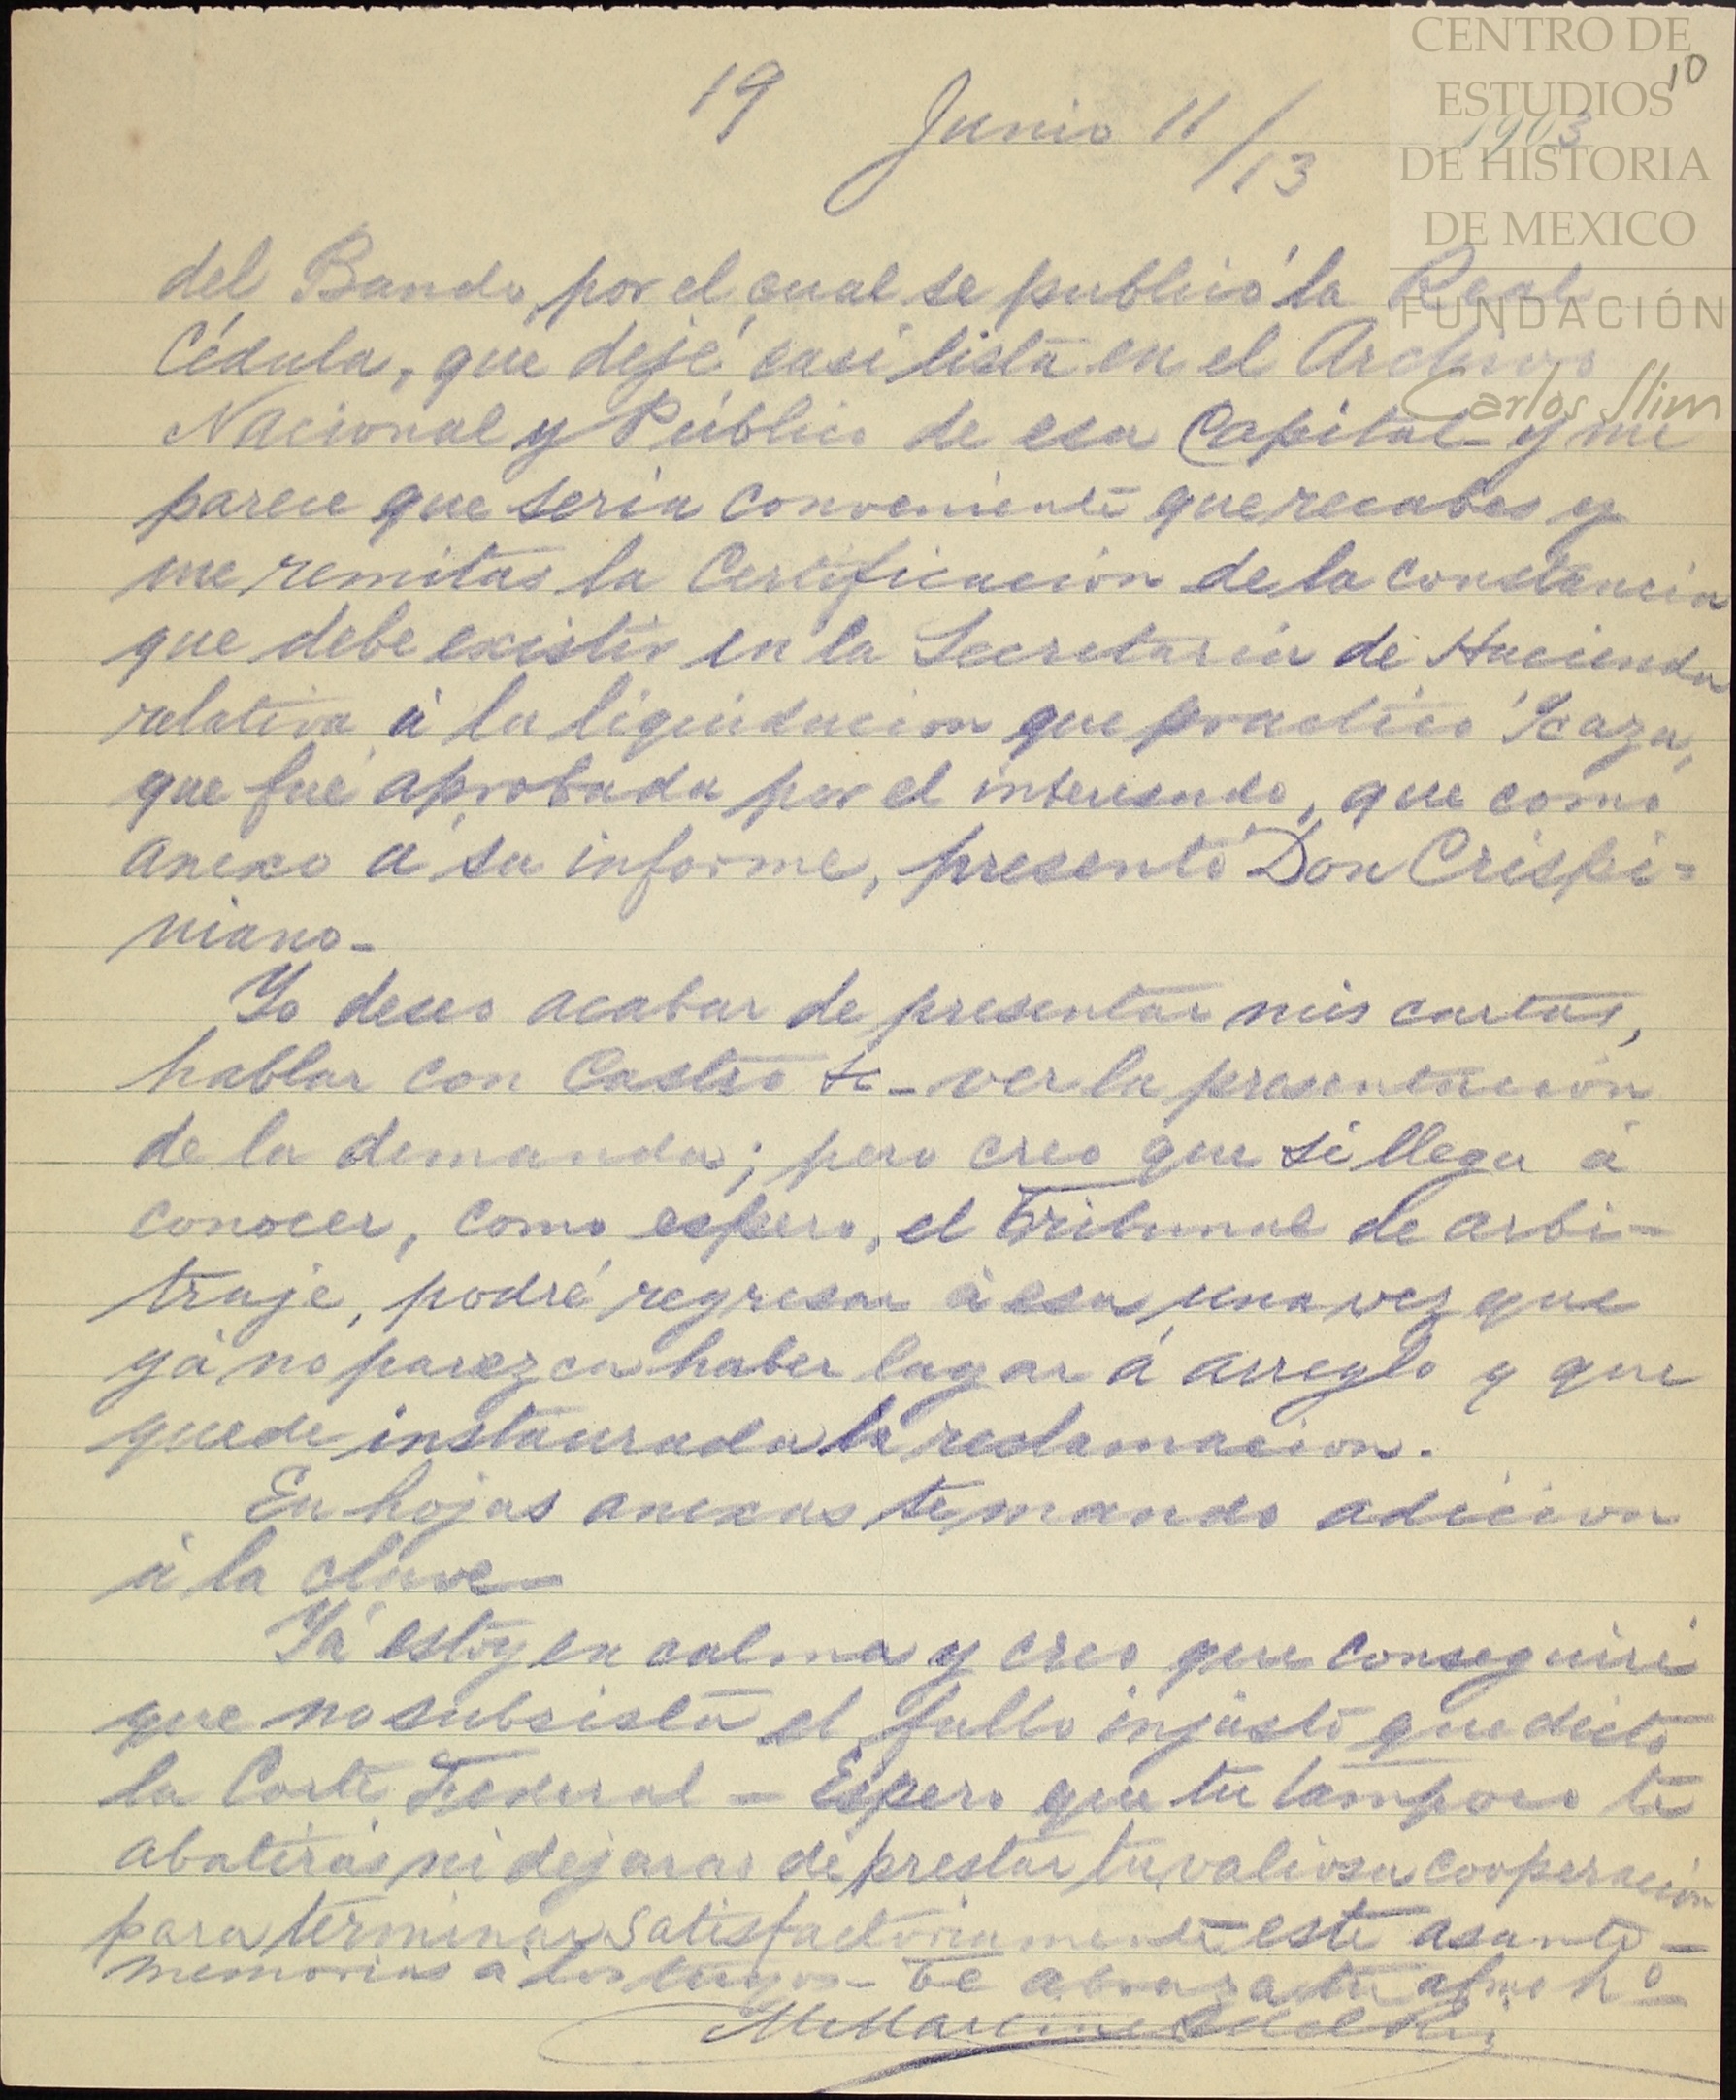 CENTRO DE
ESTUDIOS
DE HISTORIA
DE MEXICO
FUNDACIÓN
Carlos Slim
10
1903
19 Junio 11/13
del Bando por el cual se publicó la Real
Cédula, que dejé casi lista en el Archivo
Nacional y Público de esa Capital y me
parece que seria conveniente que recabes y
me remitas la Certificacion de la constancia
que debe existir en la Secretaria de Hacienda
relativa á la liquidacion que practicó Icaza,
que fué aprobada por el interesado, que como
anexo á su informe, presentó Don Crispi=
niano_
Yo deseo acabar de presentar mis cartas,
hablar con Castro _ ver la presentacion
de la demanda; pero creo que si llega á
conocer, como espero, el Tribunal de arbi-
traje, podré regresar á esa, una vez que
yá no parezca haber lugar á arreglo y que
quede instaurada la reclamacion.
En hojas anexas te mando adicion
á la clave_
Yá estoy en calma y creo que conseguiré
que no subsista el fallo injusto que dictó
la Corte Federal _ Espero que tu tampoco te
abatirás ni dejaras de prestar tu valiosa cooperacion
para terminar satisfactoriamente este asunto_
memorias á los tuyos_ te abraza tu afmo hº_